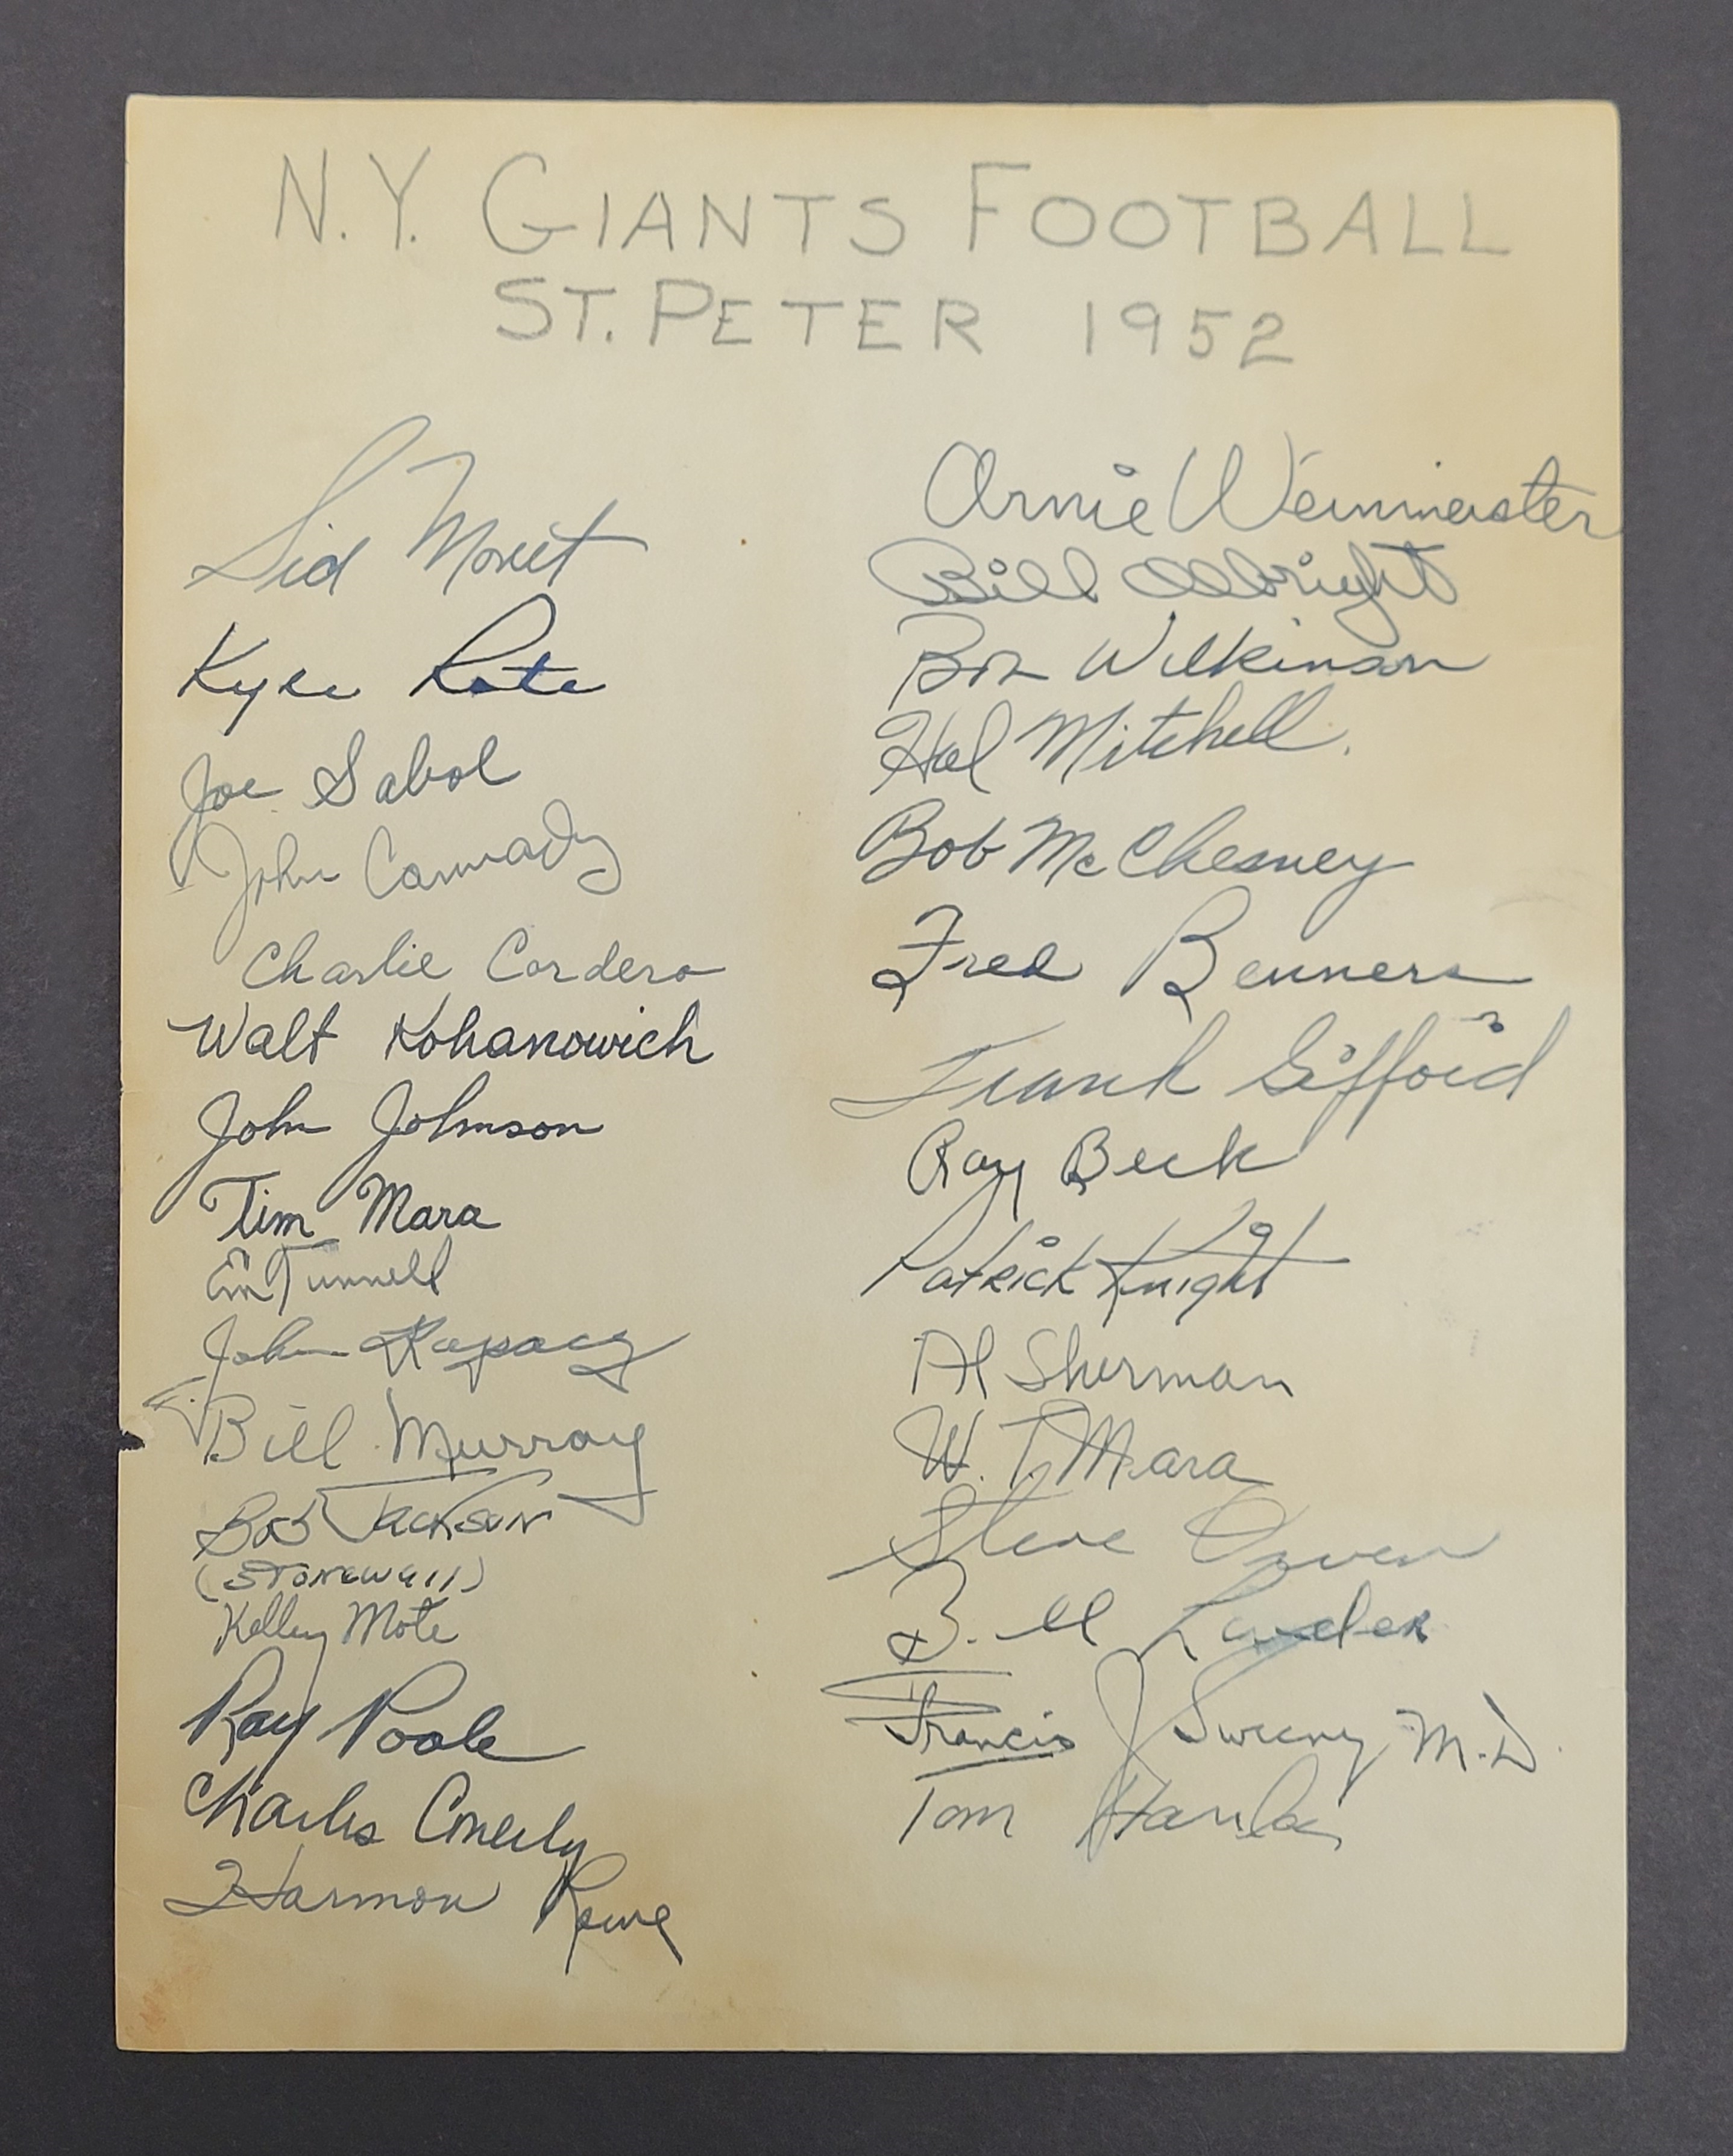 N.Y. GIANTS FOOTBALL
ST. PETER 1952
Sid Moret
Kyle Rote
Joe Sabol
John Cannady
Charlie Cordero
Walt Kohanowich
John Johnson
Tim Mara
Em Tunnell
John Rapacz
Bill Murray
Bob Jackson
(STONEWALL)
Kelley Mote
Ray Poole
Charles Conerly
Harmon Rowe
Arnie Weinmeister
Bill Albright
Bob Wilkinson
Hal Mitchell.
Bob McChesney
Fred Benners
Frank Gifford
Ray Beck
Patrick Knight
Al Sherman
W. T. Mara
Steve Owen
Bill
Francis J Sweeny M.D.
Tom